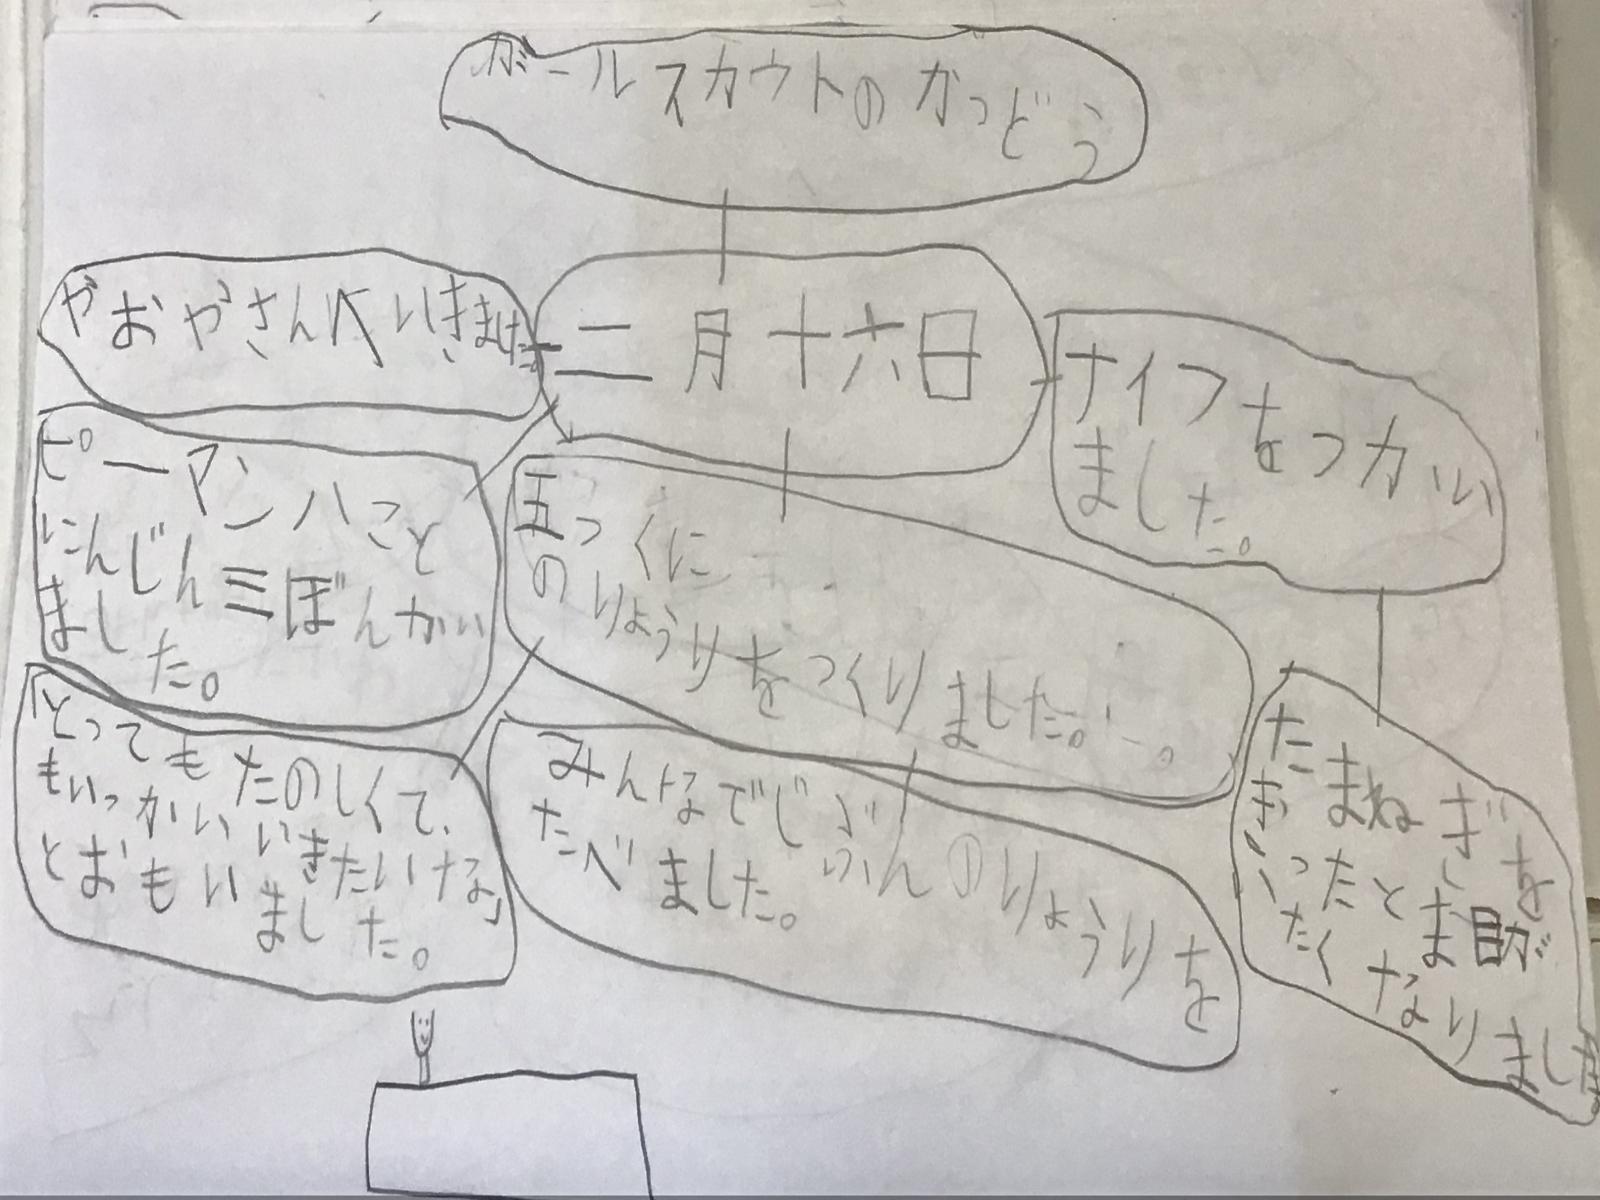 ガールスカウトのかつどう
二月十六日
やおやさんへいきました。
ピーマン八こと
にんじん三ぼんかい
ました。
五つくに
のりょうりをつくりました。
ナイフをつかい
ました。
たまねぎを
きったとき目が
いたくなりました
「とってもたのしくて、
もいっかいいきたいな」
とおもいました。
みんなでじぶんのりょうりを
たべました。